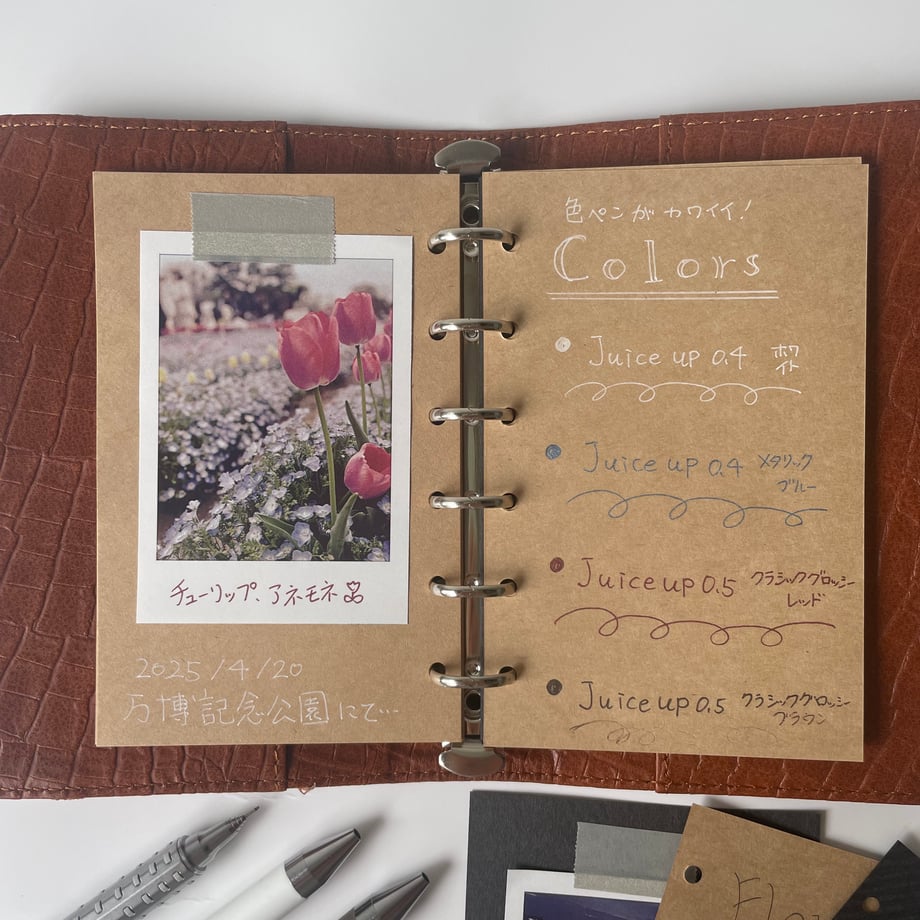 チューリップ、アネモネ
2025/4/20
万博記念公園にて…
色ペンがカワイイ!
Colors
Juice up 0.4 ホワイト
Juice up 0.4 メタリックブルー
Juice up 0.5 クラシックグロッシーレッド
Juice up 0.5 クラシックグロッシーブラウン